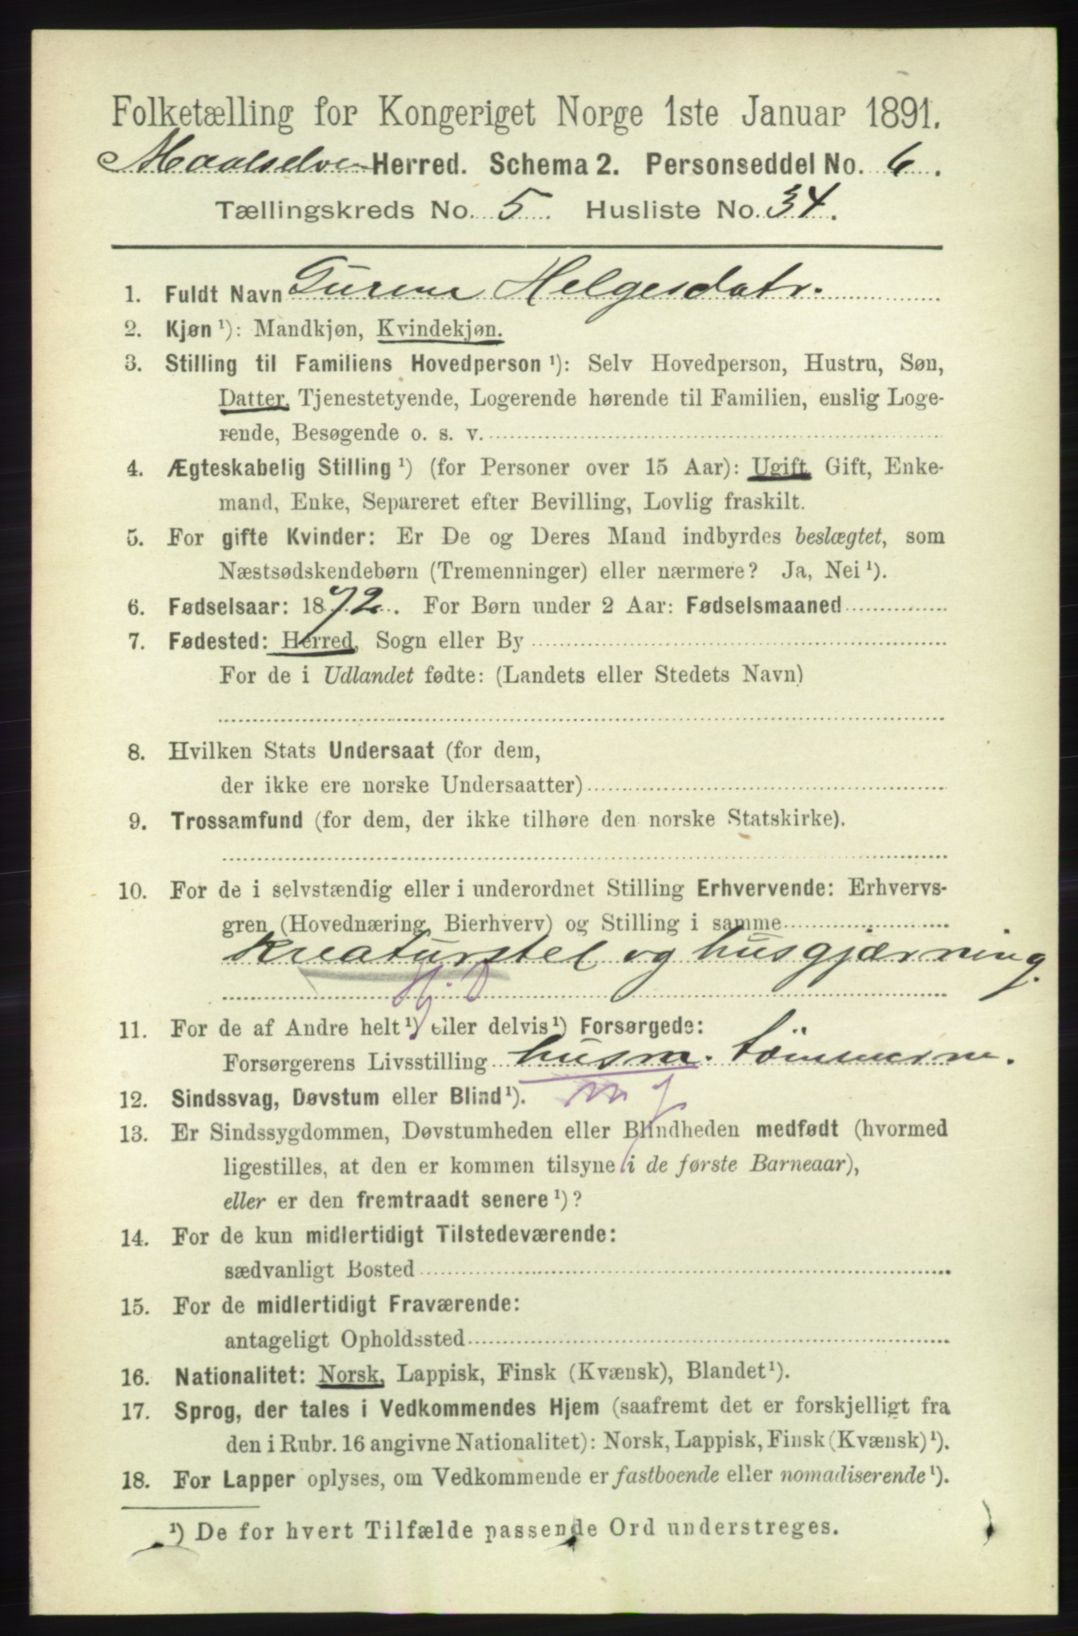 Folketælling for Kongeriget Norge 1ste Januar 1891.
Maalselven Herred. Schema 2. Personseddel No. 6.
Tællingskreds No. 5. Husliste No. 34.
1. Fuldt Navn Gurine Helgesdatr.
2. Kjøn ¹): Mandkjøn, Kvindekjøn.
3. Stilling til Familiens Hovedperson ¹): Selv Hovedperson, Hustru, Søn,
Datter, Tjenestetyende, Logerende hørende til Familien, enslig Loge-
rende, Besøgende o. s. v.
4. Ægteskabelig Stilling ¹) (for Personer over 15 Aar): Ugift, Gift, Enke-
mand, Enke, Separeret efter Bevilling, Lovlig fraskilt.
5. For gifte Kvinder: Er De og Deres Mand indbyrdes beslægtet, som
Næstsødskendebørn (Tremenninger) eller nærmere? Ja, Nei ¹).
6. Fødselsaar: 1872. For Børn under 2 Aar: Fødselsmaaned
7. Fødested: Herred, Sogn eller By
For de i Udlandet fødte: (Landets eller Stedets Navn)
8. Hvilken Stats Undersaat (for dem,
der ikke ere norske Undersaatter)
9. Trossamfund (for dem, der ikke tilhøre den norske Statskirke).
10. For de i selvstændig eller i underordnet Stilling Erhvervende: Erhvervs-
gren (Hovednæring, Bierhverv) og Stilling i samme
Kreaturstel og husgjærning.
Hj. D
11. For de af Andre helt ¹) eller delvis ¹) Forsørgede:
Forsørgerens Livsstilling husm. tömmerm.
12. Sindssvag, Døvstum eller Blind ¹).
13. Er Sindssygdommen, Døvstumheden eller Blindheden medfødt (hvormed
ligestilles, at den er kommen tilsyne i de første Barneaar),
eller er den fremtraadt senere ¹)?
14. For de kun midlertidigt Tilstedeværende:
sædvanligt Bosted
15. For de midlertidigt Fraværende:
antageligt Opholdssted
16. Nationalitet: Norsk, Lappisk, Finsk (Kvænsk), Blandet ¹).
17. Sprog, der tales i Vedkommendes Hjem (saafremt det er forskjelligt fra
den i Rubr. 16 angivne Nationalitet): Norsk, Lappisk, Finsk (Kvænsk) ¹).
18. For Lapper oplyses, om Vedkommende er fastboende eller nomadiserende ¹).
¹) De for hvert Tilfælde passende Ord understreges.